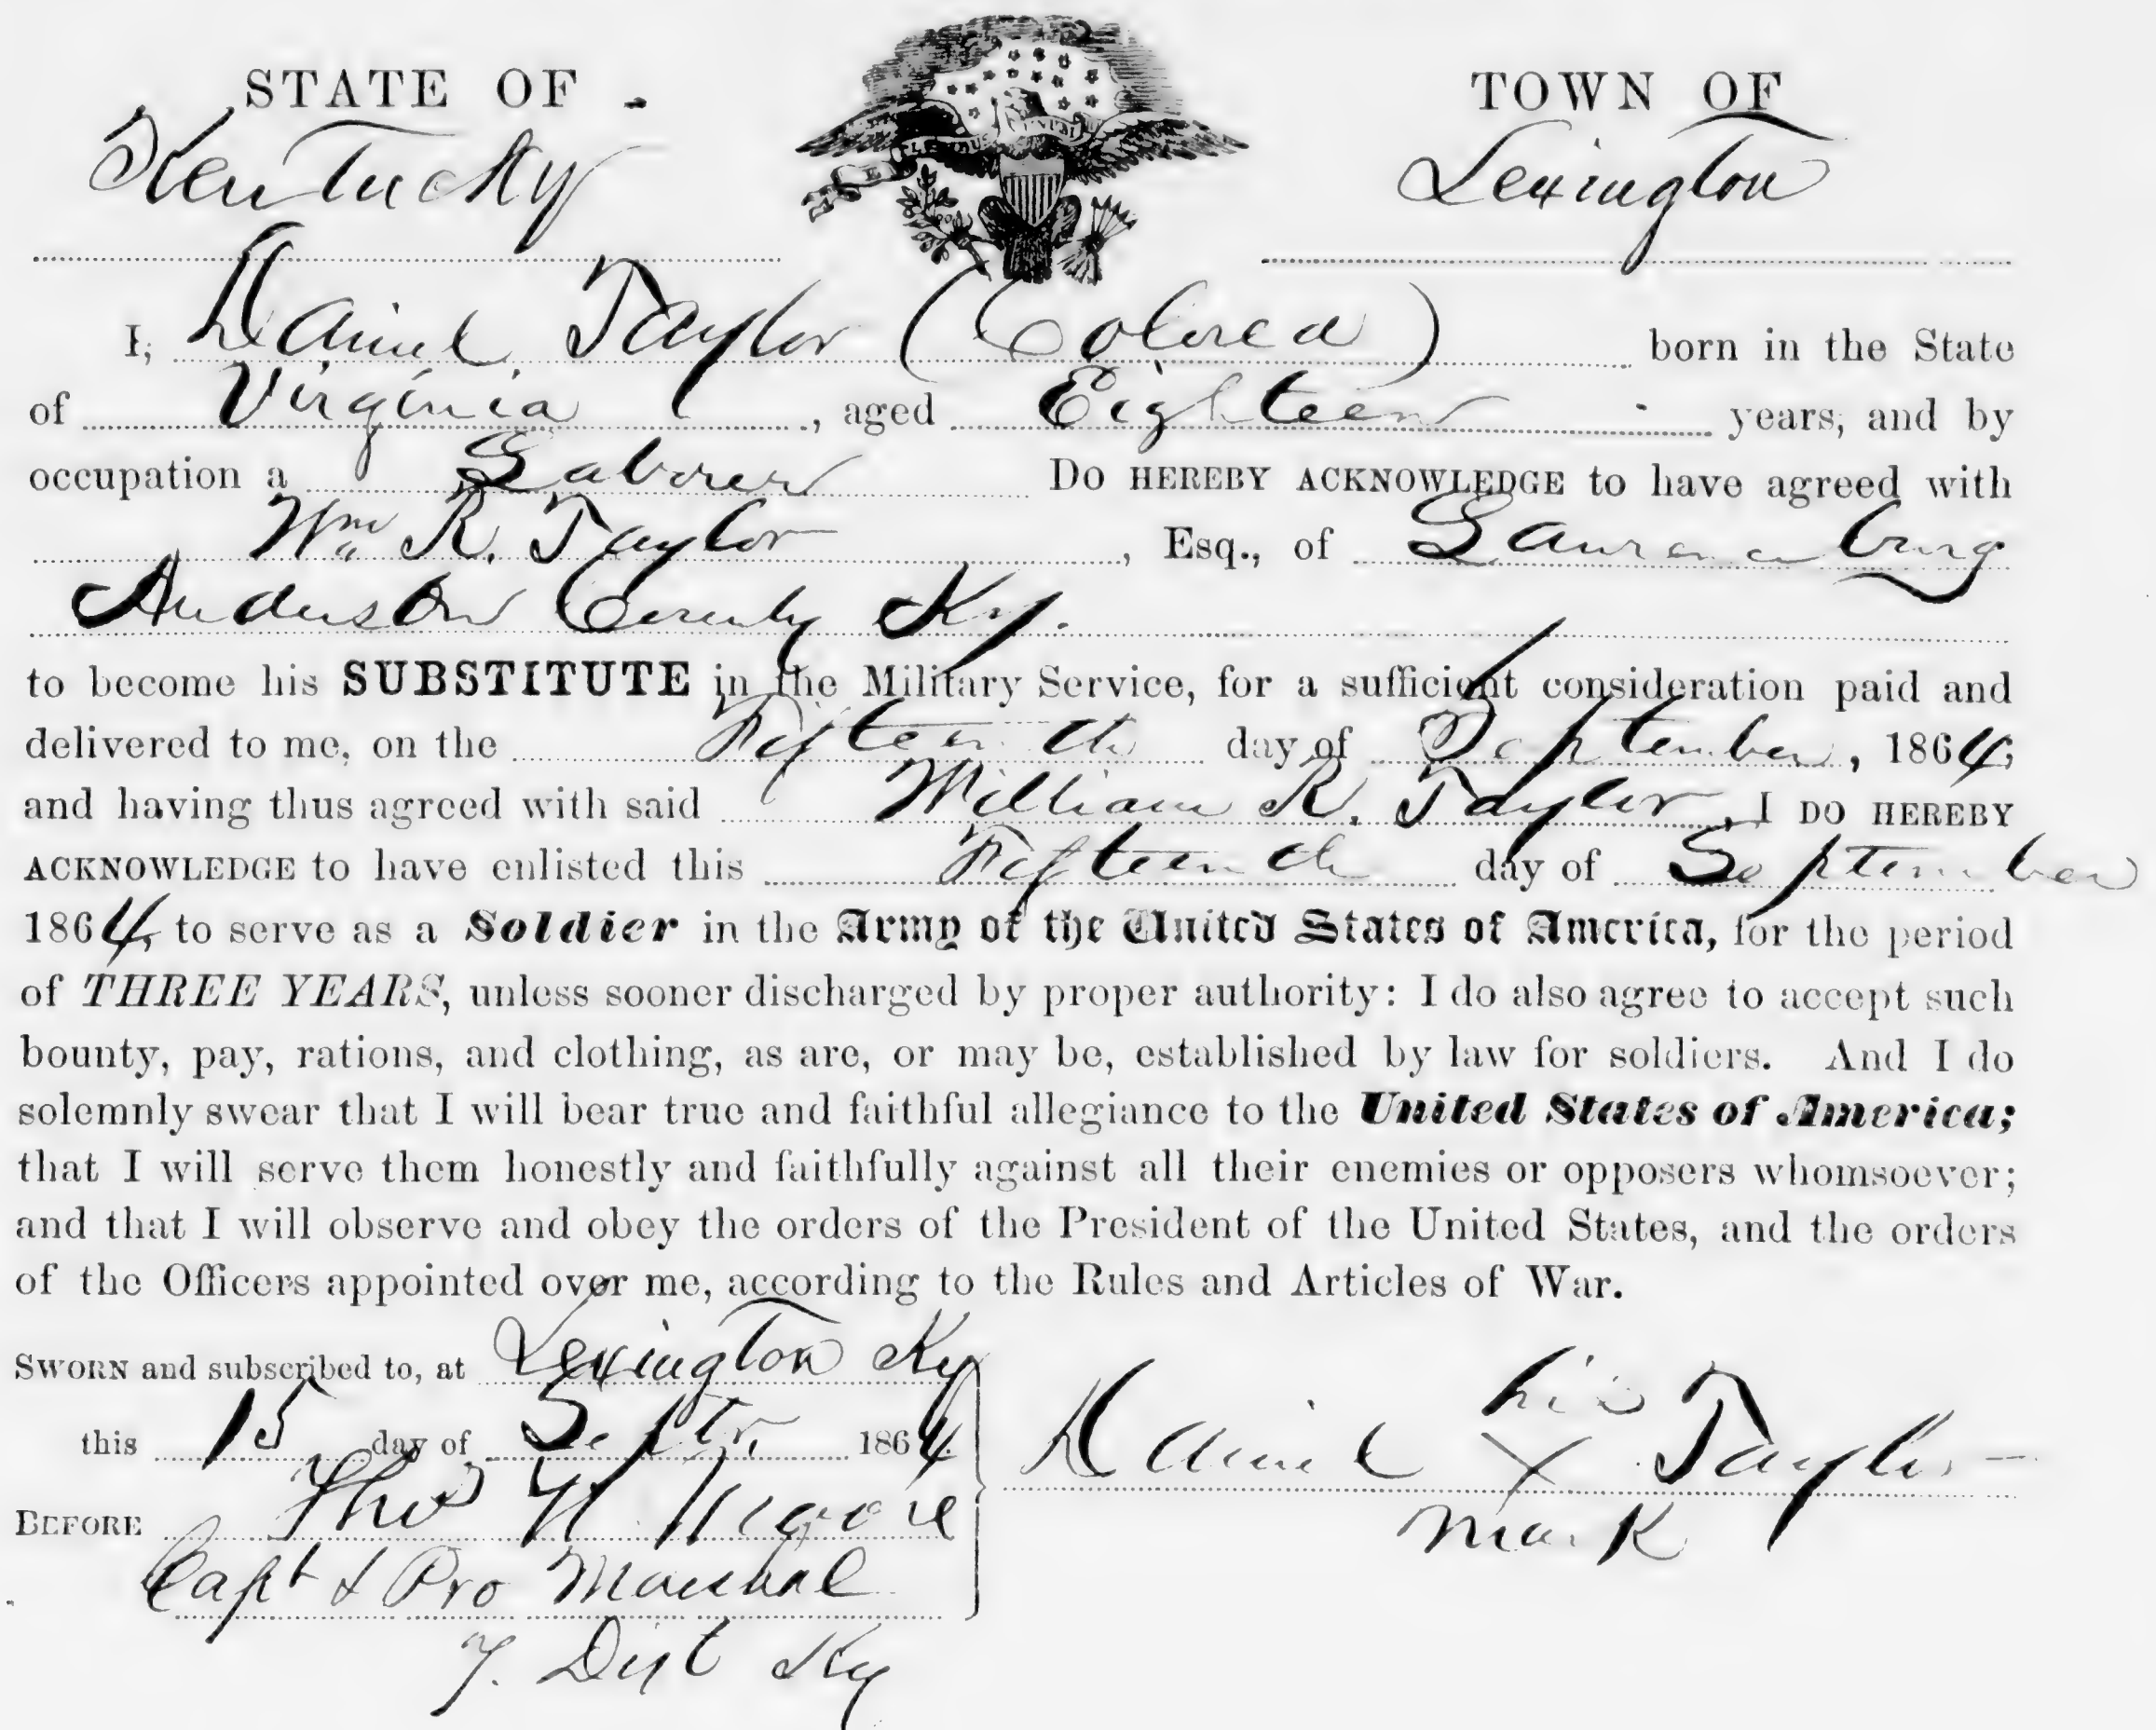 STATE OF
TOWN OF
Kentucky
Lexington
I, Daniel Taylor (Colored) born in the State
of Virginia, aged Eighteen years, and by
occupation a Laborer DO HEREBY ACKNOWLEDGE to have agreed with
Wm R. Taylor, Esq., of Laurenceburg
Anderson County Ky.
to become his SUBSTITUTE in the Military Service, for a sufficient consideration paid and
delivered to me, on the Fifteenth day of September, 1864;
and having thus agreed with said William R. Taylor, I DO HEREBY
ACKNOWLEDGE to have enlisted this Fifteenth day of September
1864, to serve as a Soldier in the Army of the United States of America, for the period
of THREE YEARS, unless sooner discharged by proper authority: I do also agree to accept such
bounty, pay, rations, and clothing, as are, or may be, established by law for soldiers. And I do
solemnly swear that I will bear true and faithful allegiance to the United States of America;
that I will serve them honestly and faithfully against all their enemies or opposers whomsoever;
and that I will observe and obey the orders of the President of the United States, and the orders
of the Officers appointed over me, according to the Rules and Articles of War.
SWORN and subscribed to, at Lexington Ky
this 15 day of Septr, 1864.
BEFORE Thos H Moore
Capt & Pro Marshal
7. Dist Ky
his
Daniel X Taylor
mark